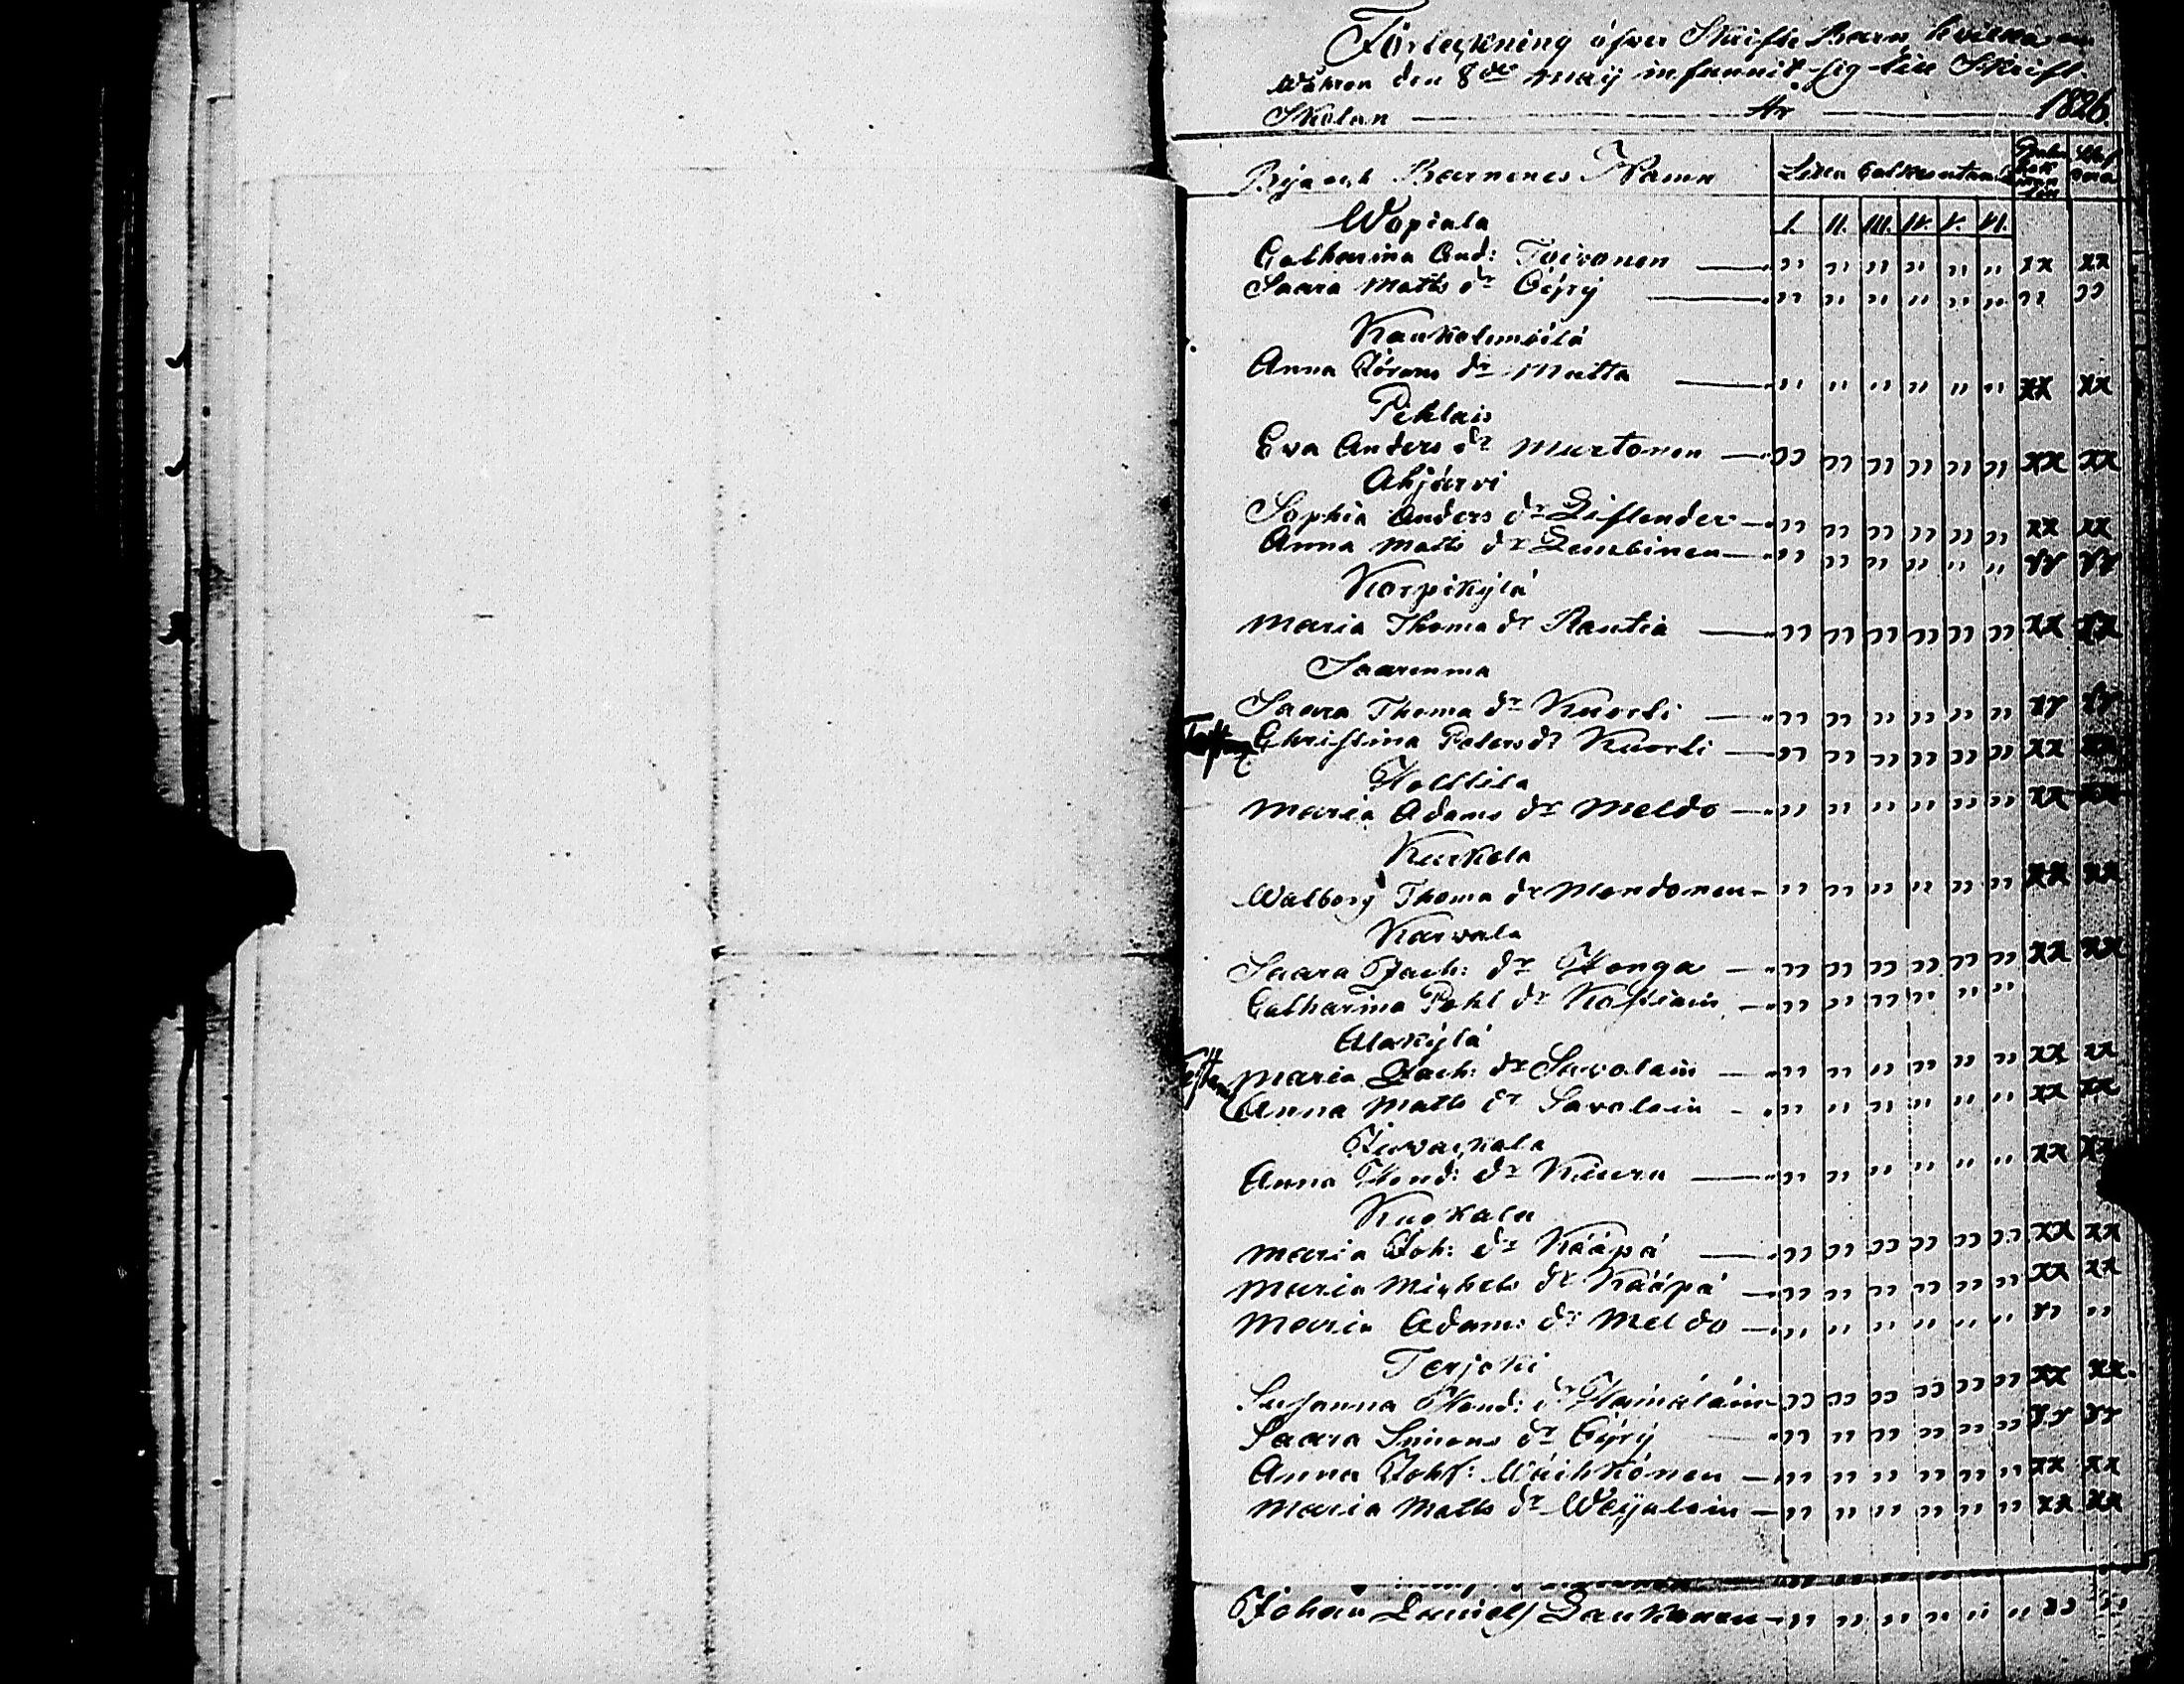 Förteckning öfver Skrifte Barn hvilka om
Wåhren den 8de Maij infunnit sig till Skrift-
Skolan År 1826.
By och Barnenes Namn
I. II. III. IV. V. VI.
Wapiala
Catharina And: Toivonen " " " " " " xx xx
Saara Matts dr Öÿrÿ " " " " " " " "
Kaukolemäilä
Anna Görans dr Mutta " " " " " " xx xx
Pihlais
Eva Anders dr Murtonen " " " " " " xx xx
Ahjärvi
Sophia Anders dr Liflender " " " " " " xx xx
Anna Matts dr Lembinen " " " " " " xx xx
Korpikÿlä
Maria Thoma dr Rautia " " " " " " xx xx
Saarenma
Saara Thoma dr Kuorti " " " " " " xx xx
Christina Peters dr Kuorti " " " " " " xx xx
Holttila
Maria Adams dr Meldo " " " " " " xx xx
Kurkela
Walborg Thoma dr Mondonen " " " " " " xx xx
Karvala
Saara Zach: dr Honga " " " " " " xx xx
Catharina Pehl dr " " " " " "
Alakÿlä
Maria Zach: dr Savolain " " " " " " xx xx
Anna Matts dr Savolain " " " " " " xx xx
Anna Hend: dr Kiuru " " " " " " xx xx
Kuokala
Maria Joh: dr Kääpä " " " " " " xx xx
Maria Michels dr Kääpä " " " " " " xx xx
Maria Adams dr Meldo " " " " " " x" "
Terjoki
Susanna Hend: dr Hämäläin " " " " " " xx xx.
Saara Simons dr Öÿrÿ " " " " " " xx xx
Anna Johs: Wäihkönen " " " " " " xx xx
Maria Matts dr Weijalain " " " " " " xx xx
Johan Daniels Laukanen " " " " " " " "